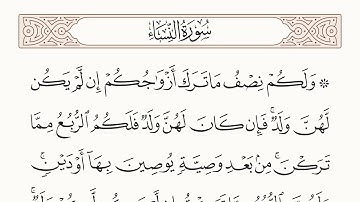 سُورَةُ النِّسَاءِ
۞ وَلَكُمْ نِصْفُ مَا تَرَكَ أَزْوَٰجُكُمْ إِن لَّمْ يَكُن
لَّهُنَّ وَلَدٌ ۚ فَإِن كَانَ لَهُنَّ وَلَدٌ فَلَكُمُ ٱلرُّبُعُ مِمَّا
تَرَكْنَ ۚ مِنۢ بَعْدِ وَصِيَّةٍ يُوصِينَ بِهَآ أَوْ دَيْنٍ ۚ